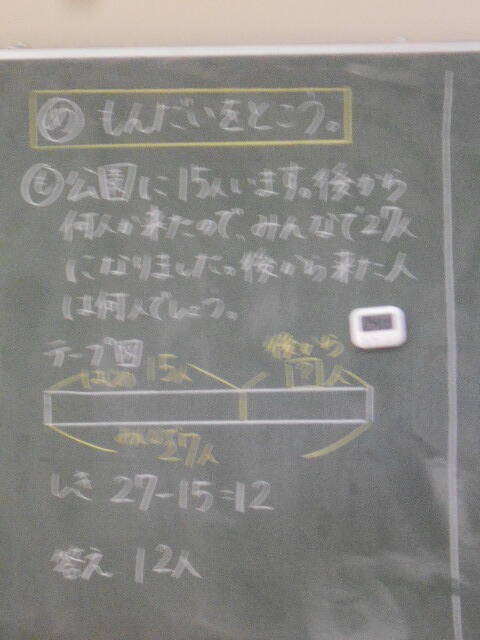 め もんだいをとこう。
も 公園に15人います。後から
何人か来たので、みんなで27人
になりました。後から来た人
は何人でしょう。
テープ図
はじめ 15人
後から
□人
みんなで
27人
しき 27-15=12
答え 12人